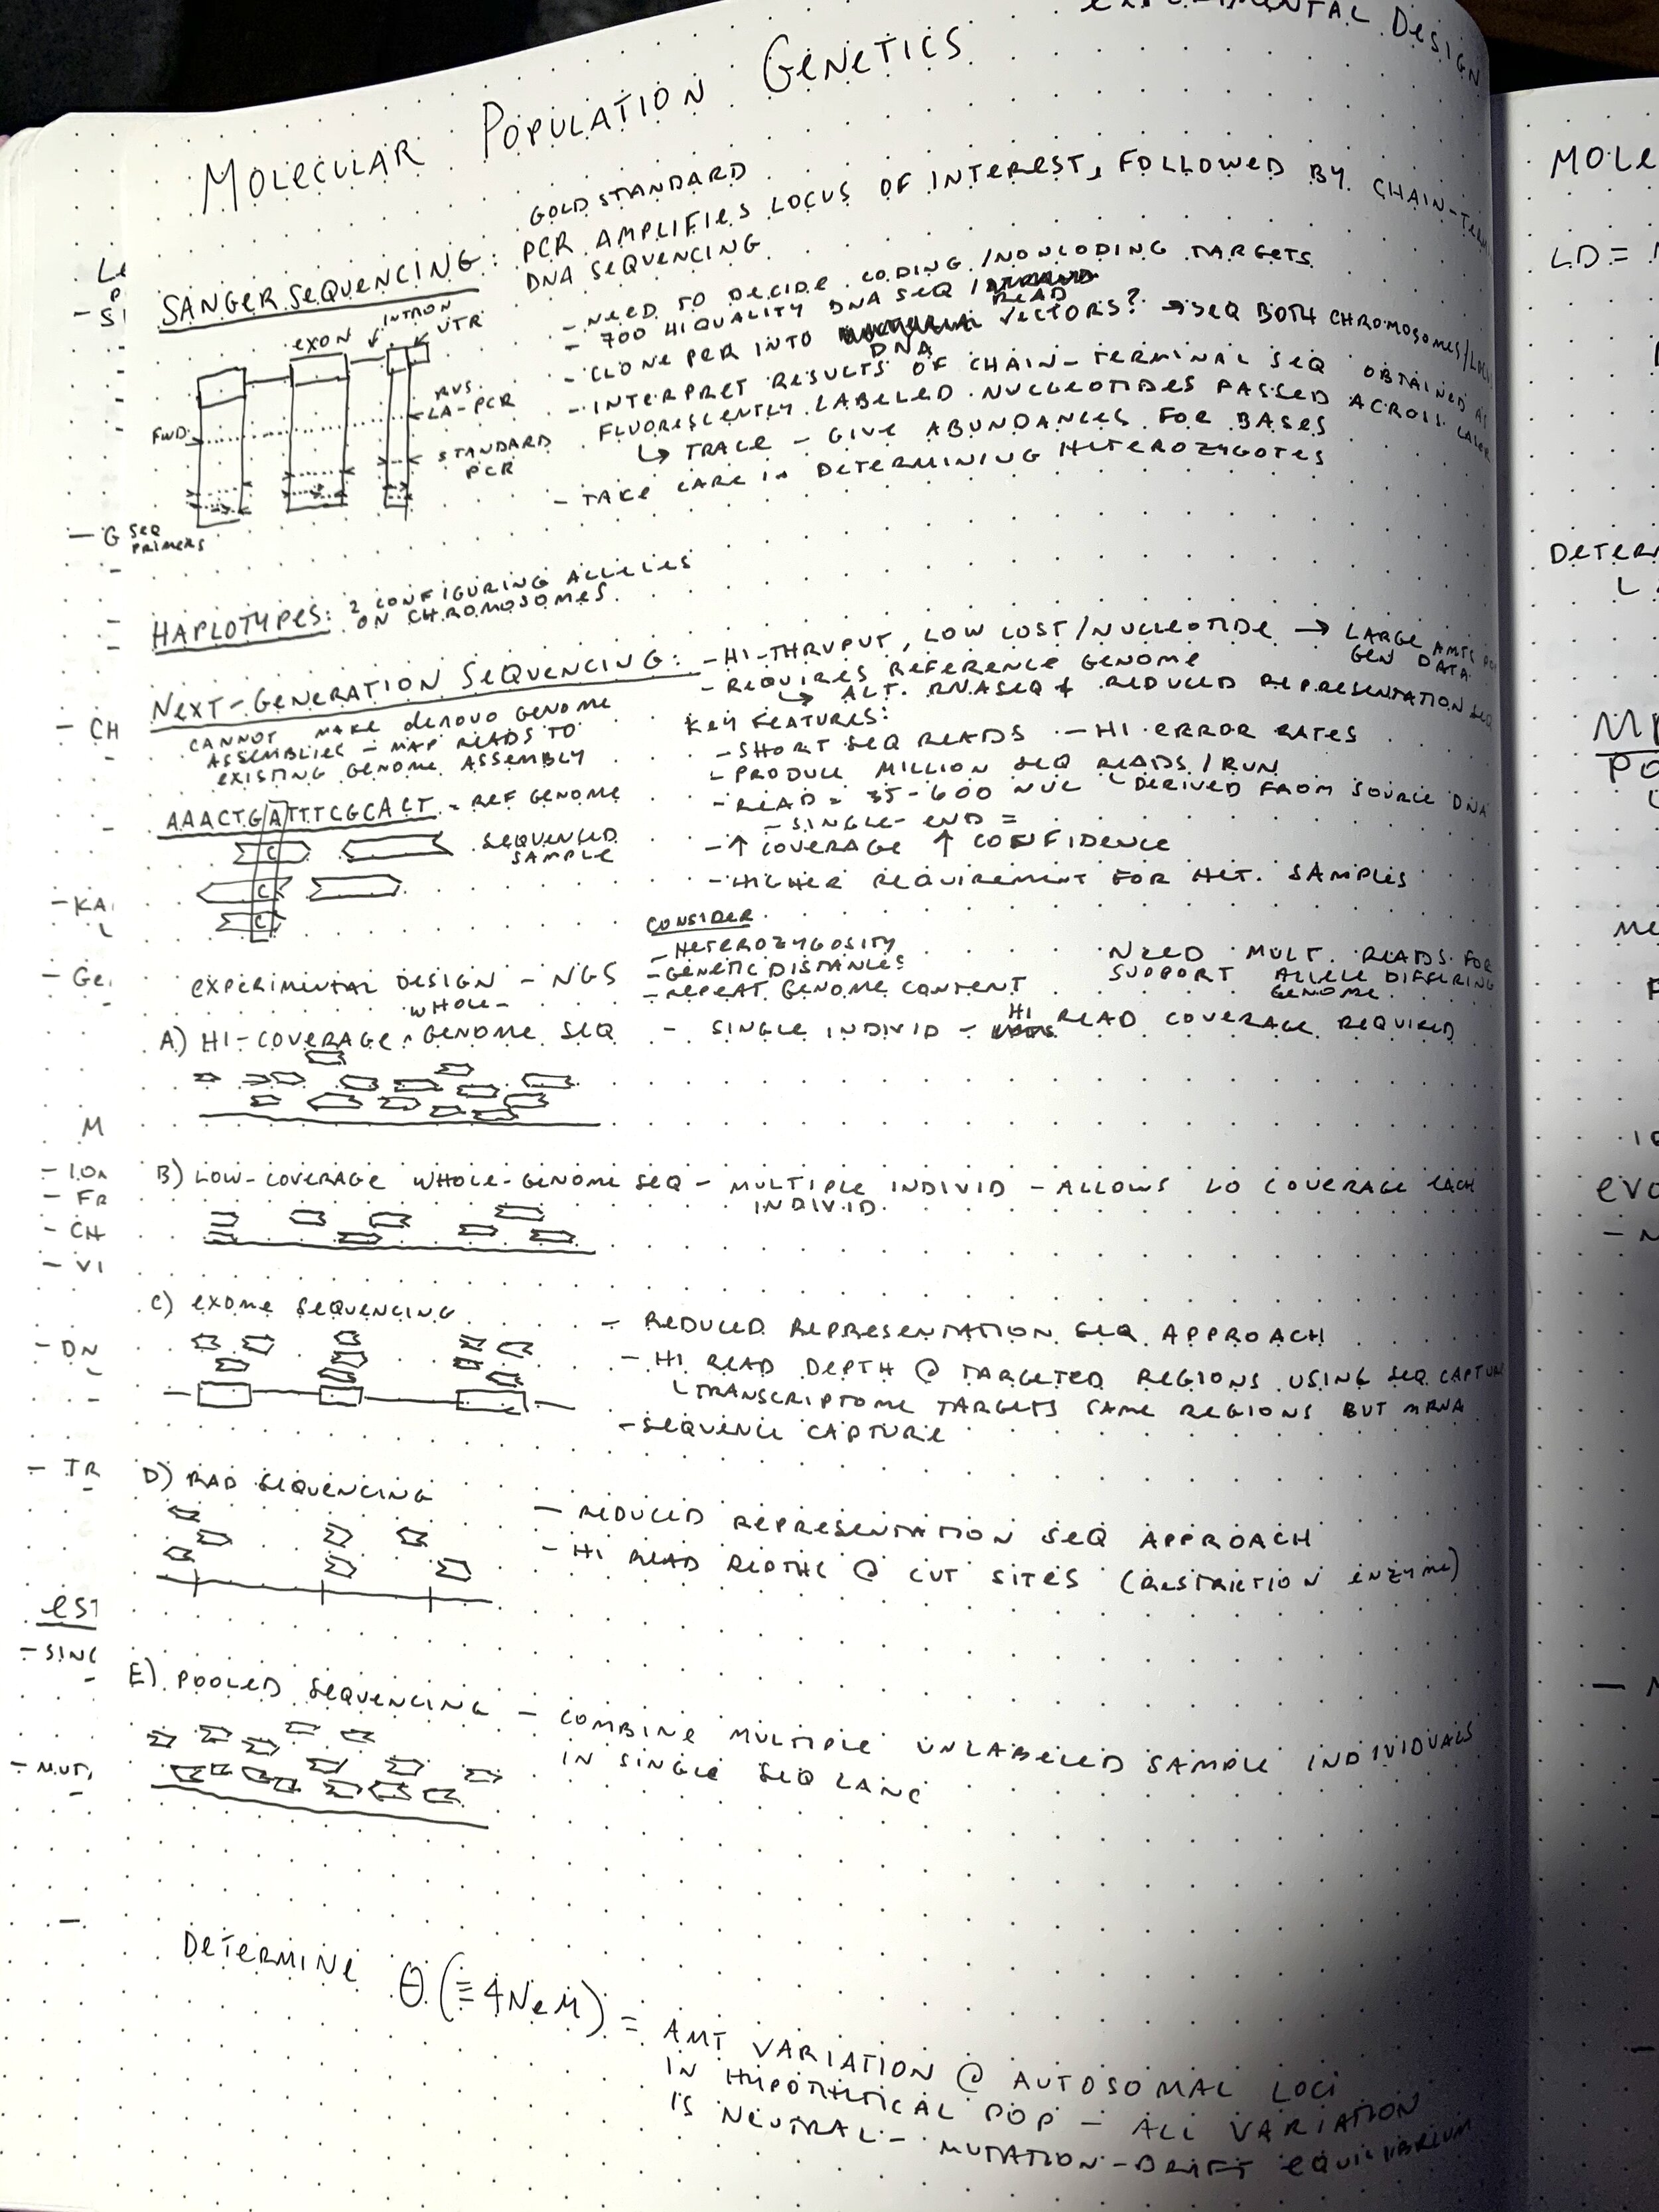 EXPERIMENTAL DESIGN
MOLECULAR POPULATION GENETICS
GOLD STANDARD
SANGER SEQUENCING: PCR AMPLIFIES LOCUS OF INTEREST, FOLLOWED BY CHAIN-TERM
DNA SEQUENCING
EXON INTRON UTR
FWD.
RVS.
LA-PCR
STANDARD
PCR
SEQ
PRIMERS
- NEED TO DECIDE CODING/NONCODING TARGETS
- 700 HI QUALITY DNA SEQ / READ
- CLONE PCR INTO DNA VECTORS? → SEQ BOTH CHROMOSOMES/
- INTERPRET RESULTS OF CHAIN-TERMINAL SEQ OBTAINED AS
FLUORESCENTLY LABELED NUCLEOTIDES PASSED ACROSS LASER
↳ TRACE - GIVE ABUNDANCES FOR BASES
- TAKE CARE IN DETERMINING HETEROZYGOTES
HAPLOTYPES: 2 CONFIGURING ALLELES
ON CHROMOSOMES
NEXT-GENERATION SEQUENCING: - HI-THRUPUT, LOW COST/NUCLEOTIDE → LARGE AMTS
GEN DATA
- REQUIRES REFERENCE GENOME
↳ ALT. RNASEQ & REDUCED REPRESENTATION SEQ
CANNOT MAKE DENOVO GENOME
ASSEMBLIES - MAP READS TO
EXISTING GENOME ASSEMBLY
KEY FEATURES:
- SHORT SEQ READS - HI ERROR RATES
- PRODUCE MILLION SEQ READS / RUN
└ DERIVED FROM SOURCE DNA
- READ = 35-600 NUC
- SINGLE-END =
- ↑ COVERAGE ↑ CONFIDENCE
- HIGHER REQUIREMENT FOR HET. SAMPLES
AAACTGATTTCGCACT = REF GENOME
C
SEQUENCED
SAMPLE
C
C
EXPERIMENTAL DESIGN - NGS
CONSIDER
- HETEROZYGOSITY
- GENETIC DISTANCES
- REPEAT GENOME CONTENT
NEED MULT. READS FOR
SUPPORT ALLELE DIFFERING
GENOME
A) HI-COVERAGE WHOLE-GENOME SEQ - SINGLE INDIVID - HI READ COVERAGE REQUIRED
B) LOW-COVERAGE WHOLE-GENOME SEQ - MULTIPLE INDIVID - ALLOWS LO COVERAGE EACH
INDIVID.
C) EXOME SEQUENCING
- REDUCED REPRESENTATION SEQ APPROACH
- HI READ DEPTH @ TARGETED REGIONS USING SEQ CAPTURE
└ TRANSCRIPTOME TARGETS SAME REGIONS BUT MRNA
- SEQUENCE CAPTURE
D) RAD SEQUENCING
- REDUCED REPRESENTATION SEQ APPROACH
- HI READ @ CUT SITES (RESTRICTION ENZYME)
E) POOLED SEQUENCING - COMBINE MULTIPLE UNLABELED SAMPLE INDIVIDUALS
IN SINGLE SEQ LANE
DETERMINE Θ (≡ 4NeM) = AMT VARIATION @ AUTOSOMAL LOCI
IN HYPOTHETICAL POP - ALL VARIATION
IS NEUTRAL - MUTATION-DRIFT EQUILIBRIUM
MOLE
LD =
DETER
EVO